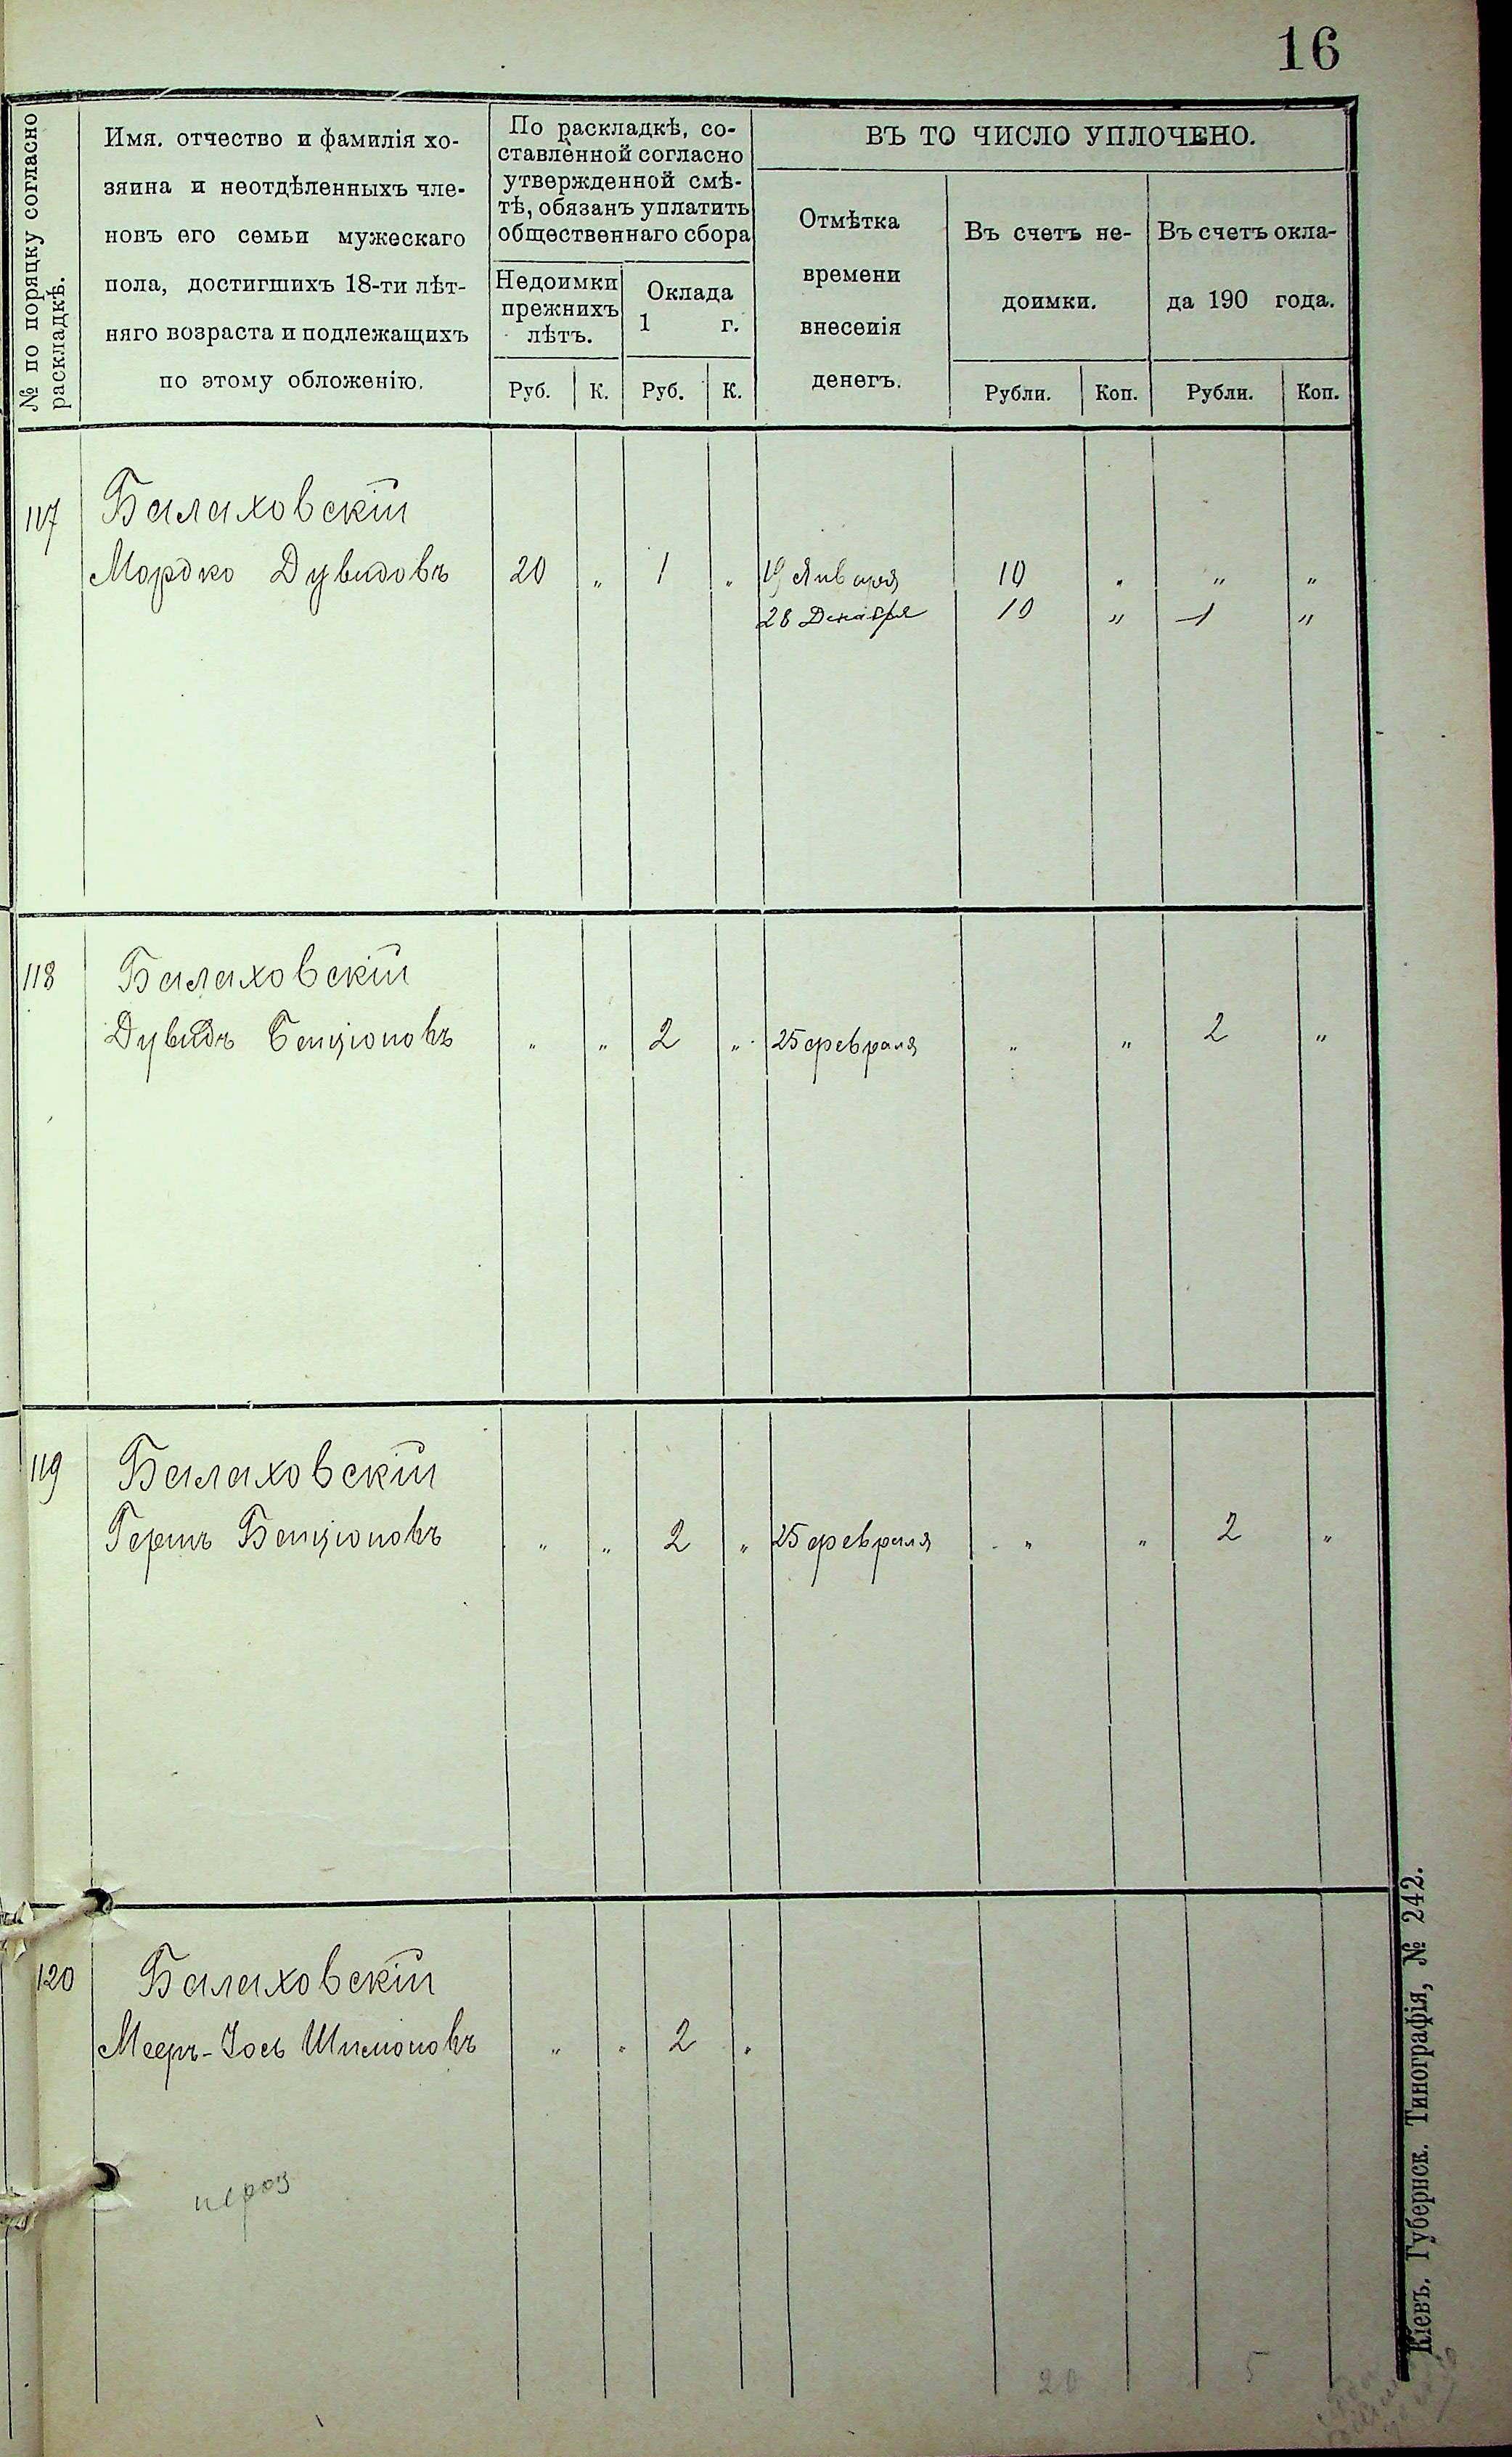 16
№ по порядку согласно
раскладкѣ.
Имя, отчество и фамилія хо-
зяина и неотдѣленныхъ чле-
новъ его семьи мужескаго
пола, достигшихъ 18-ти лѣт-
няго возраста и подлежащихъ
по этому обложенію.
По раскладкѣ, со-
ставленной согласно
утвержденной смѣ-
тѣ, обязанъ уплатить
общественнаго сбора
Недоимки
прежнихъ
лѣтъ.
Оклада
1 г.
Руб. К. Руб. К.
ВЪ ТО ЧИСЛО УПЛОЧЕНО.
Отмѣтка
времени
внесенія
денегъ.
Въ счетъ не-
доимки.
Въ счетъ окла-
да 190 года.
Рубли. Коп. Рубли. Коп.
117 Балаховскій
Мордко Дувидовъ 20 „ 1 „ 19 Января 10 „ „ „
28 Декабря 10 „ 1 „
118 Балаховскій
Дувидъ Бенціоновъ „ „ 2 „ 25 февраля „ „ 2 „
119 Балаховскій
Гершъ Бенціоновъ „ „ 2 „ 25 февраля „ „ 2 „
120 Балаховскій
Мееръ-Іось Шимоновъ „ „ 2 „
20 5
Кіевъ. Губернск. Типографія, № 242.